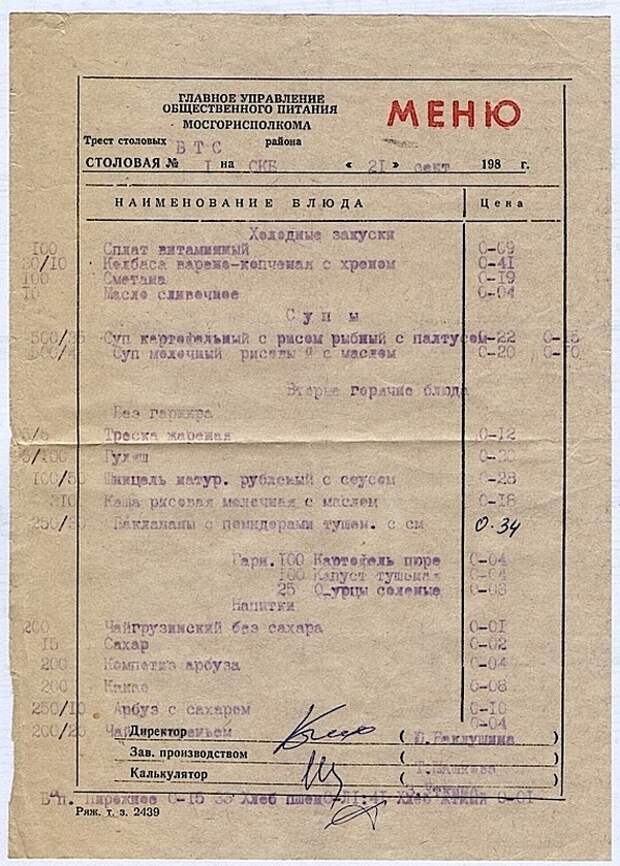 ГЛАВНОЕ УПРАВЛЕНИЕ
ОБЩЕСТВЕННОГО ПИТАНИЯ
МОСГОРИСПОЛКОМА
МЕНЮ
Трест столовых ВТС района
СТОЛОВАЯ № I на СКБ « 21 » сент 198 г.
НАИМЕНОВАНИЕ БЛЮДА Цена
Холодные закуски
100 Сплат витаминный 0-09
/10 Колбаса варено-копченая с хреном 0-41
100 Сметана 0-19
10 Масло сливочное 0-04
Супы
500/ Суп картофельный с рисом рыбный с палтусом 0-22
500/ Суп молочный рисовый с маслом 0-20 0-10
Вторые горячие блюда
Без гарнира
Треска жареная 0-12
/100 Гуляш
100/50 Шницель натур. рубленый с соусом 0-28
310 Каша рисовая молочная с маслом 0-18
250/ Баклажаны с помидорами тушен. с см 0-34
Гарн. 100 Картофель пюре 0-04
100 Капуст тушеная 0-04
25 О_урцы соленые 0-03
Напитки
200 Чайгрузинский без сахара 0-01
15 Сахар 0-02
200 Компотиз арбуза 0-04
200 Какао 0-08
250/10 Арбуз с сахаром 0-10
200/20 Чай 0-04
Директор ( )
Зав. производством ( )
Калькулятор ( )
Пирожное 0-15 Хлеб Хлеб 0-01
Ряж. т. з. 2439